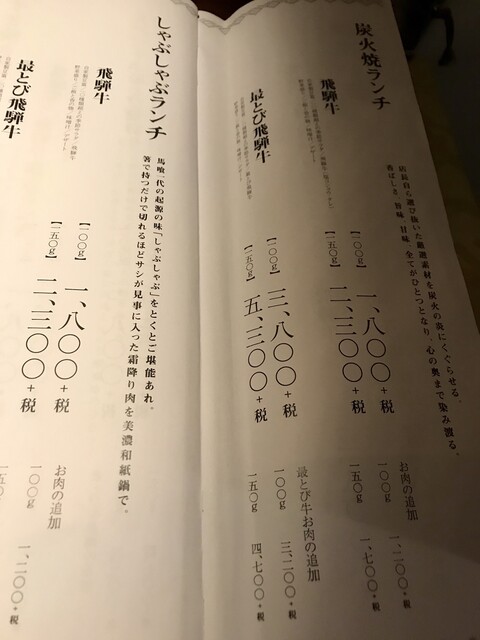 炭火焼ランチ
店長自ら選び抜いた厳選素材を炭火の炎にくぐらせる。
香ばしさ、旨味、甘味、全てがひとつとなり、心の奥まで染み渡る。
飛騨牛
【一〇〇g】 一、八〇〇+税
【一五〇g】 二、三〇〇+税
お肉の追加
一〇〇g 一、二〇〇+税
一五〇g 一、七〇〇+税
最とび飛騨牛
【一〇〇g】 三、八〇〇+税
【一五〇g】 五、三〇〇+税
最とび牛お肉の追加
一〇〇g 三、二〇〇+税
一五〇g 四、七〇〇+税
しゃぶしゃぶランチ
馬喰一代の起源の味「しゃぶしゃぶ」をとくとご堪能あれ。
箸で持つだけで切れるほどサシが見事に入った霜降り肉を美濃和紙鍋で。
飛騨牛
【一〇〇g】 一、八〇〇+税
【一五〇g】 二、三〇〇+税
お肉の追加
一〇〇g 一、二〇〇+税
最とび飛騨牛